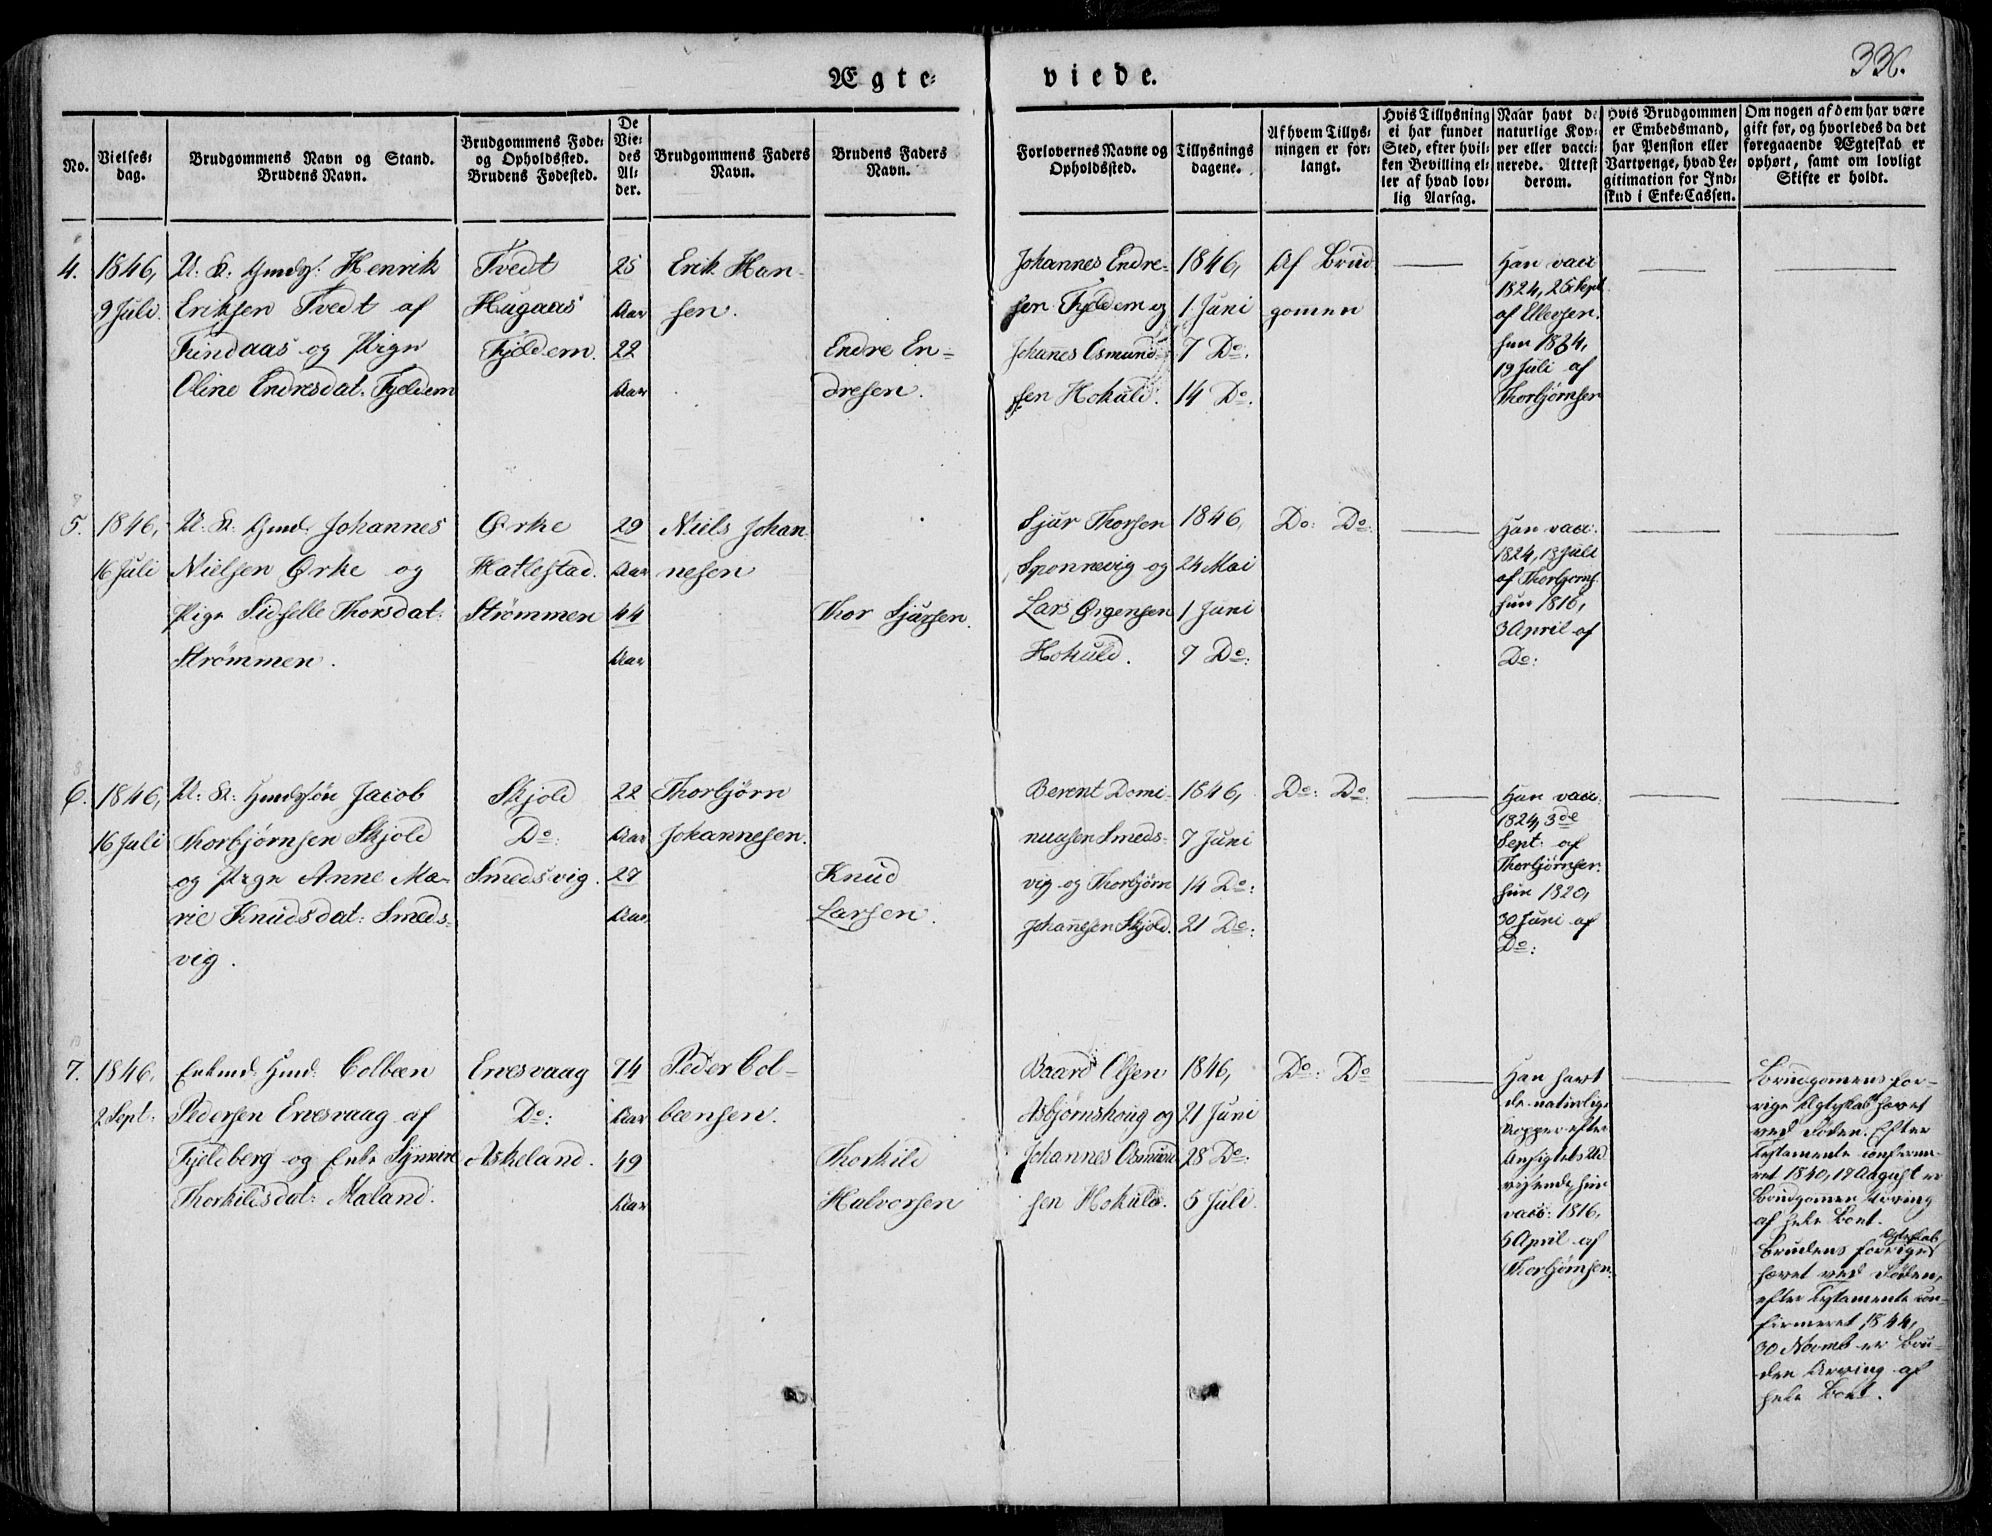 Ægte-
viede.
336.
No.
Vielses-
dag.
Brudgommens Navn og Stand.
Brudens Navn.
Brudgommens Føde-
og Opholdssted.
Brudens Fødested.
De
Vie-
des
Al-
der.
Brudgommens Faders
Navn.
Brudens Faders
Navn.
Forlovernes Navne og
Opholdssted.
Tillysnings
dagene.
Af hvem Tillys-
ningen er for-
langt.
Hvis Tillysning
ei har fundet
Sted, efter hvil-
ken Bevilling el-
ler af hvad lov-
lig Aarsag.
Naar havt de
naturlige Kop-
per eller vacci-
nerede. Attest
derom.
Hvis Brudgommen
er Embedsmand,
har Pension eller
Vartpenge, hvad Le-
gitimation for Ind-
skud i Enke-Cassen.
Om nogen af dem har være
gift før, og hvorledes da det
foregaaende Ægteskab er
ophørt, samt om lovligt
Skifte er holdt.
4.
1846,
9 Juli.
U: K: Gmds: Henrik
Eriksen Tvedt af
Findaas og Pige
Oline Endresdat: Fjeldem
Tvedt
Hugaas
Fjeldem.
25
Aar
22
Aar
Erik Han-
sen.
Endre En-
dresen.
Johannes Endre-
sen Fjeldem og
Johanes Osmund-
sen Hokuld.
1846,
1 Juni
7 Do.
14 Do.
Af Brud
gomen
Han vacc
1824, 25 Sept
af Ellevsen.
hun 1824,
19 Juli af
Thorbjørnsen
5.
1846,
16 Juli
U: K: Gmd: Johannes
Nielsen Ørke og
Pige Sidselle Thorsdat:
Strømmen.
Ørke
Hatlestad.
Strømmen
29
Aar
44
Aar
Niels Johan
nesen
Thor Sjursen.
Sjur Thorsen
Sponnevig og
Lars Ørgensen
Hokuld.
1846,
24 Mai
1 Juni
7 Do:
Do: Do:
Han vacc:
1824, 13 Juli
af Thorbjørns.
hun 1816,
3 April af
Do:
6.
1846,
16 Juli
U: K: Gmdssøn Jacob
Thorbjørnsen Skjold
og Pige Anne Ma-
rie Knudsdat: Smeds-
vig.
Skjold
Do:
Smedsvig.
22
Aar
27
Aar
Thorbjørn
Johannesen.
Knud
Larsen.
Berent Domi-
nussen Smeds-
vig og Thorbjørn
Johanesen Skjold.
1846,
7 Juni
14 Do:
21 Do:
Do: Do:
Han vacc:
1824, 3de
Sept: af
Thorbjørnsen.
hun 1820,
30 Juni af
Do:
7.
1846.
2 Sept:
Enkmd: Gmd: Colbæn
Pedersen Ervesvaag af
Fjeldberg og Enke Synnive
Thorkildsdat: Maland.
Ervesvaag
Do:
Askeland.
74
Aar
49
Aar
Peder Col-
bænsen.
Thorkild
Halvorsen
Baard Olsen
Asbjørnshoug og
Johannes Osmund
sen Hokuld.
1846,
21 Juni
28 Do:
5 Juli.
Do: Do
Han havt
de naturlige
Kopper efter
Ansigtets Ud
visende, hun
vacc: 1816,
5 April af
Thorbjørnsen.
Brudgomens for-
rige Ægteskab hævet
ved Døden. Efter
Testamente confirme-
ret 1840, 17 August er
Brudgomen Arving
af hele Boet.
Brudens forrige Ægteskab
hævet ved Døden,
efter Testamente con-
firmeret 1844,
30 Novemb er Bru-
den Arving af
hele Boet.